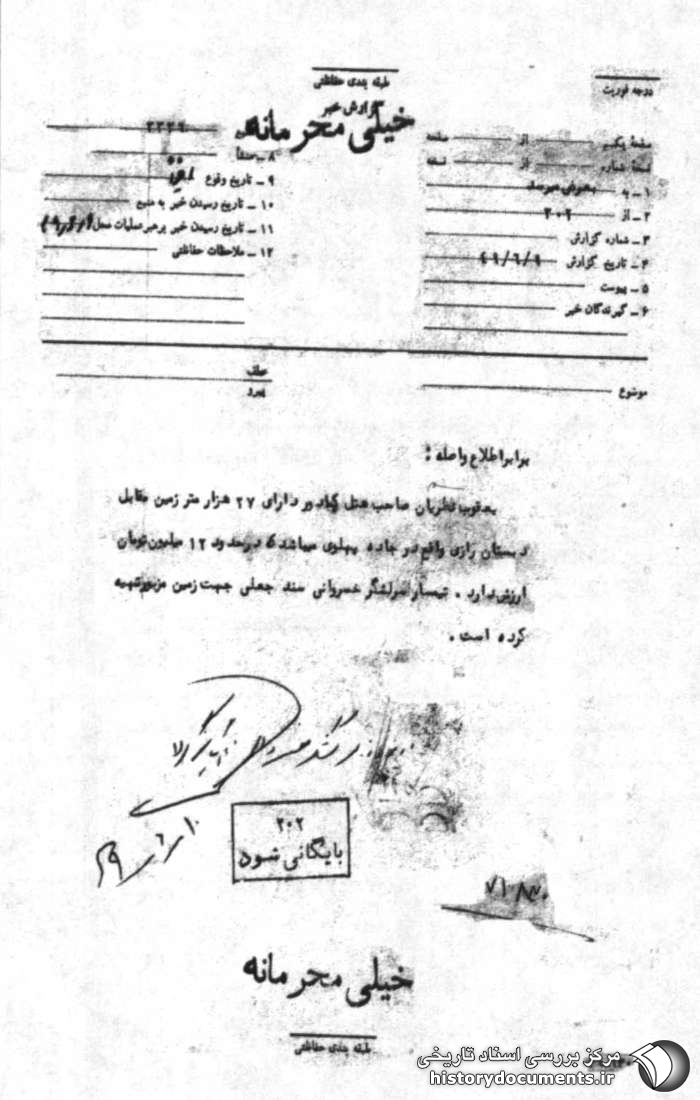 طبقه بندی حفاظتی
درجه فوریت
گزارش خبر
خیلی محرمانه
صفحه یکم از صفحه
نسخه شماره از نسخه
۱ – به بعرض میرسد
۲ – از ۲۰۲
۳ – شماره گزارش
۴ – تاریخ گزارش ۴۹/۶/۹
۵ – پیوست
۶ – گیرندگان خبر
۲۳۲۹
۸ – منشأ
۹ – تاریخ وقوع
۱۰ – تاریخ رسیدن خبر به منبع
۱۱ – تاریخ رسیدن خبر برهبر عملیات محل
۱۲ – ملاحظات حفاظتی
موضوع
عطف
پیرو
برابر اطلاع واصله :
یعقوب نظریان صاحب هتل کیادور دارای ۲۷ هزار متر زمین مقابل
دبستان رازی واقع در جاده پهلوی میباشد که در حدود ۱۲ میلیون تومان
ارزش دارد . تیمسار سرلشگر خسروانی سند جعلی جهت زمین مزبور تهیه
کرده است .
۲۰۲
بایگانی شود
۴۹/۶/۱۰
خیلی محرمانه
طبقه بندی حفاظتی
مرکز بررسی اسناد تاریخی
historydocuments.ir